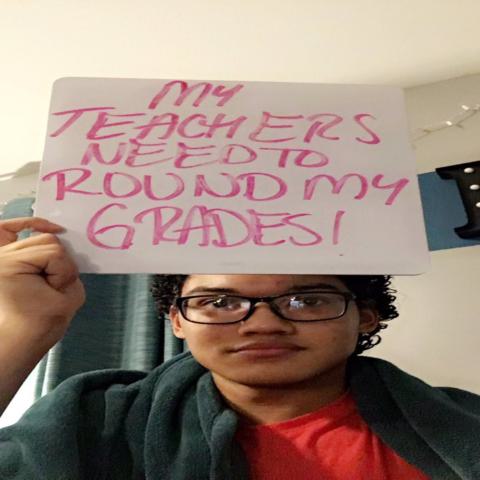 MY
TEACHERS
NEED TO
ROUND MY
GRADES!